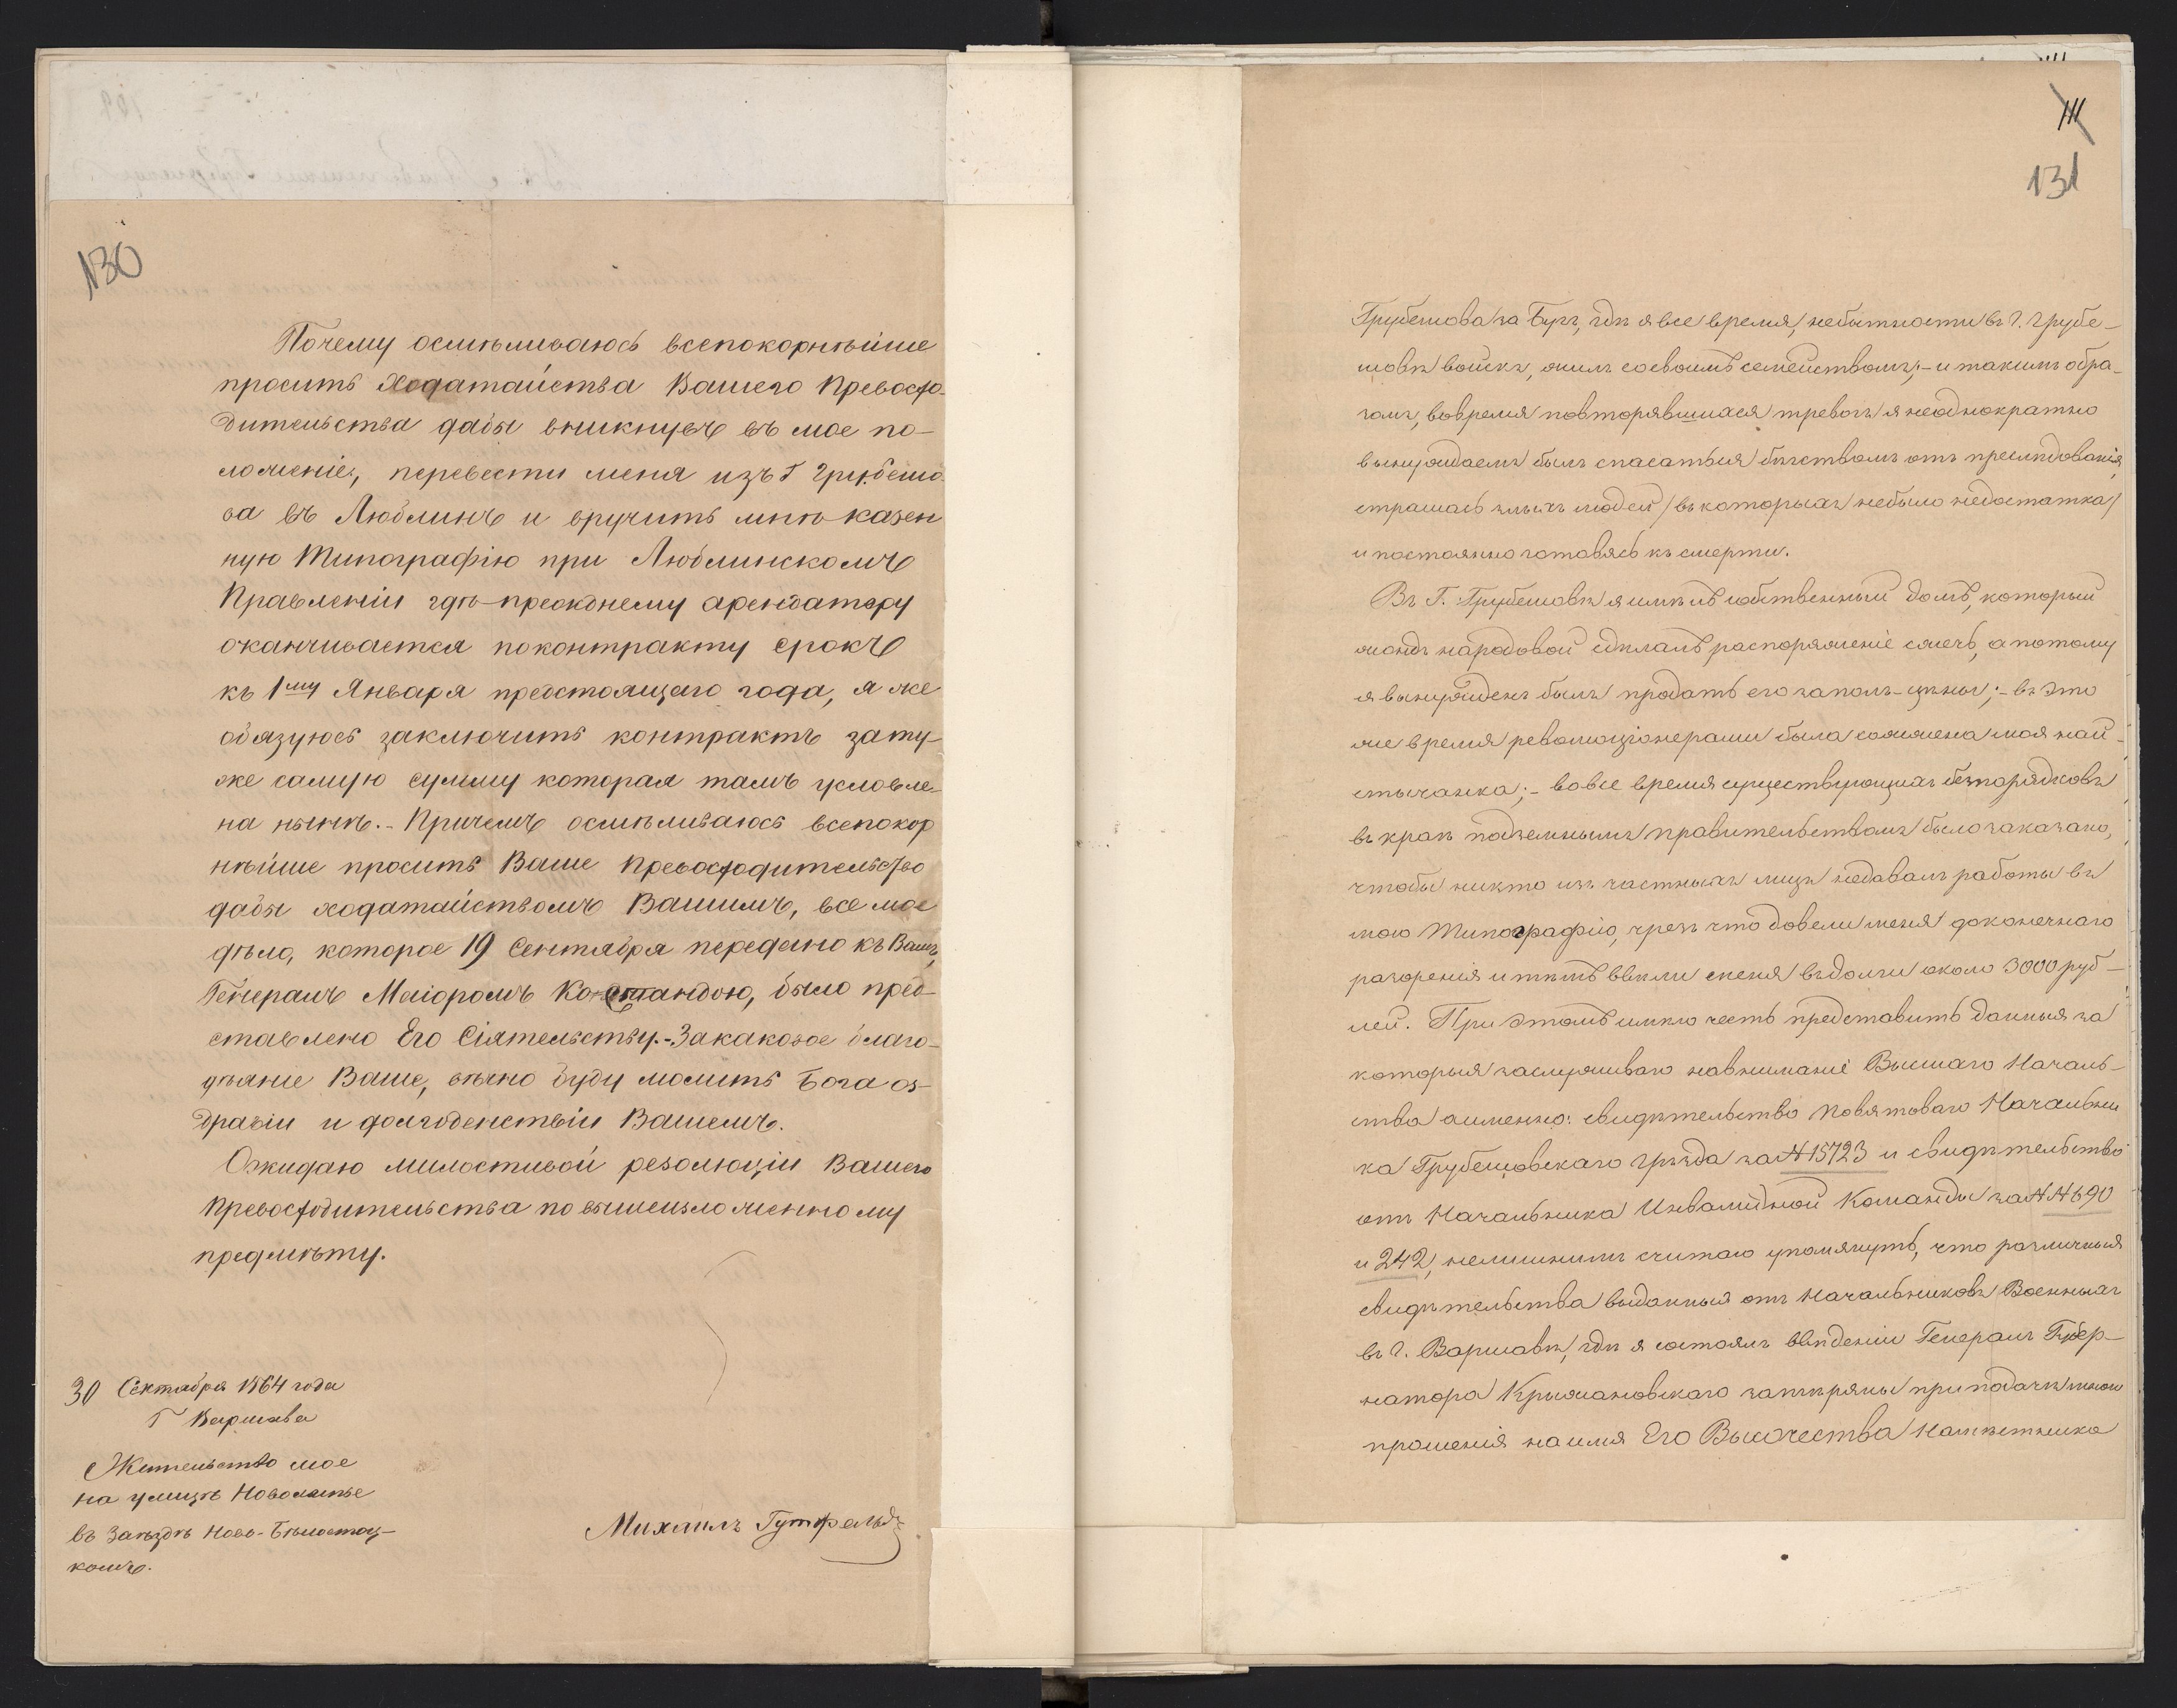 130
Почему осмѣливаюсь всепокорнѣйше
просить ходатайства Вашего Превосхо-
дительства дабы вникнувъ въ мое по-
ложеніе, перевести меня изъ Г Грубешо-
ва въ Люблинъ и вручить мнѣ казен
ную Типографію при Люблинскомъ
Правленіи гдѣ прежднему арендатору
оканчивается поконтракту срокъ
къ 1му Января предстоящаго года, я же
обязуюсь заключить контрактъ зату-
же самую сумму которая тамъ условле-
на нынѣ.- Причемъ осмѣливаюсь всепокор
нѣйше просить Ваше Превосходительство
дабы ходатайствомъ Вашимъ, все мое
дѣло, которое 19 Сентября передано къ Вамъ,
Генералъ Маіоромъ Костандою, было пред-
ставлено Его Сіятельству.-Закаковое благо-
дѣяніе Ваше, вѣчно буду молить Бога оз-
дравіи и долгоденствіи Вашемъ.
Ожидаю милостивой резолюціи Вашего
Превосходительства по вышеизложенному
предмѣту.
30 Сентября 1864 года
Г Варшава
Жительство мое
на улицѣ Новолипье
въ Заѣздѣ Ново-Бѣлостоц-
комъ.
Михаилъ Гутфельдъ
111
131
Грубешова за Бугъ, гдѣ я все время, небытности въ г. Грубе-
шовѣ войскъ, жилъ со своимъ семействомъ;- и такимъ обра-
зомъ, вовремя повторявшихся тревогъ я неоднократно
вынуждаемъ былъ спасаться бѣгствомъ отъ преслѣдованія,
страшась злыхъ людей /въ которыхъ небыло недостатка/
и постоянно готовясь къ смерти.
Въ Г. Грубешовѣ я имѣлъ собственный домъ, который
жондъ народовой сдѣлалъ распоряженіе сжечь, а потому
я вынужденъ былъ продать его заполъ-цѣны;- въ это
же время революціонерами была сожжена моя най-
тычанка;- вовсе время существующихъ безпорядковъ
въ краѣ подземнымъ правительствомъ было заказано,
чтобы никто изъ частныхъ лицъ недавалъ работы въ
мою Типографію, чрезъ что довели меня доконечнаго
разоренія и тѣмъ ввели меня въдолги около 3000 руб-
лей. При этомъ имѣю честь представить данныя за
которыя заслуживаю навниманіе Высшаго Началь-
ства аименно: свидѣтельство Повятоваго Начальни
ка Грубешовскаго Уѣзда за № 15723 и свидѣтельство
отъ Начальника Инвалидной Команды за №№ 690
и 242, нелишнимъ считаю упомянуть, что различныя
свидѣтельства выданныя отъ Начальниковъ Военныхъ
въ г. Варшавѣ, гдѣ я состоялъ ввѣденіи Генералъ Губер-
натора Крыжановскаго затѣряны при подачѣ мною
прошенія на имя Его Высочества Намѣстника